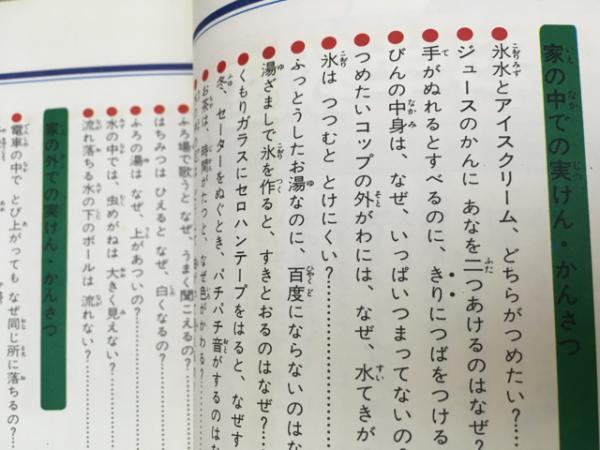 家の中での実けん・かんさつ
氷水とアイスクリーム、どちらがつめたい?
ジュースのかんに あなを二つあけるのはなぜ?
手がぬれるとすべるのに、きりにつばをつける
びんの中身は、なぜ、いっぱいつまってないの?
つめたいコップの外がわには、なぜ、水てきが
氷は つつむと とけにくい?
ふっとうしたお湯なのに、百度にならないのはな
湯ざましで氷を作ると、すきとおるのはなぜ?
くもりガラスにセロハンテープをはると、なぜす
冬、セーターをぬぐとき、パチパチ音がするのはな
お茶は、時間がたつと、なぜ色がかわる?
ふろ場で歌うと なぜ、うまく聞こえるの?
はちみつは ひえると なぜ、白くなるの?
ふろの湯は なぜ、上があついの?
水の中では、虫めがねは 大きく見えない?
流れ落ちる水の下のボールは 流れない?
家の外での実けん・かんさつ
電車の中で とび上がっても なぜ同じ所に落ちるの?